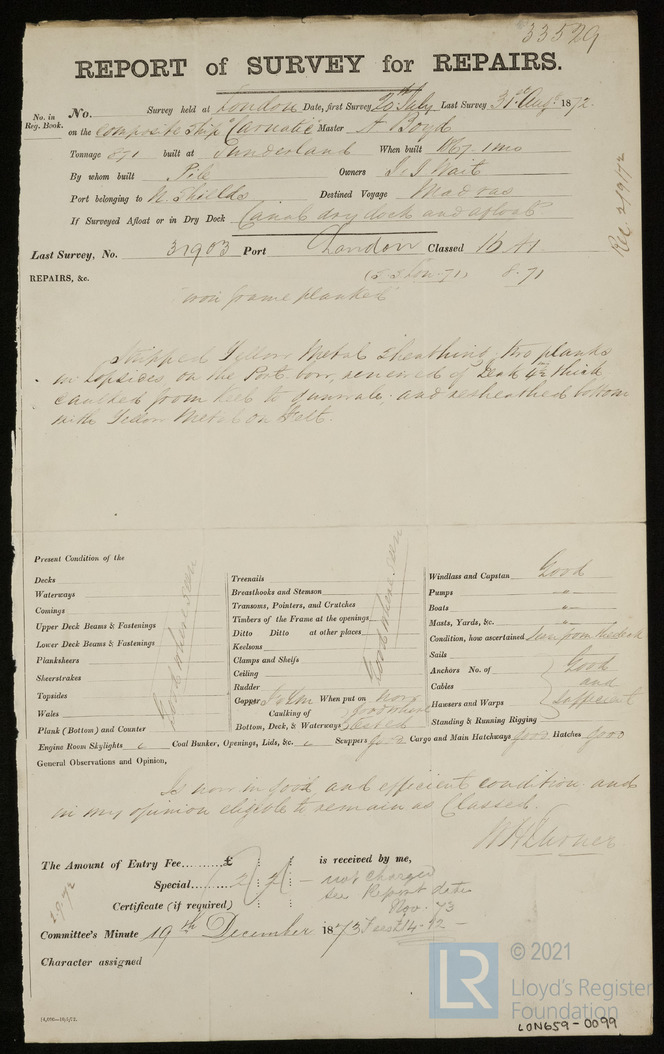 33529
REPORT of SURVEY for REPAIRS.
No. in Reg. Book.
No. Survey held at London Date, first Survey 20th July Last Survey 31st Augt 1872.
on the Composite Ship "Carnatic" Master A Boyd
Tonnage 871 built at Sunderland When built 1867. 1 mo
By whom built Pile Owners J. J Wait
Port belonging to N. Shields Destined Voyage Madras
If Surveyed Afloat or in Dry Dock Canal dry dock and afloat
Rec 2/9/72
Last Survey, No. 31903 Port London Classed 16 A1
REPAIRS, &c. 8.71
iron frame planked
Stripped Yellow Metal Sheathing, two planks
in topsides, on the Port bow, renewed of thick
caulked from keel to gunwale, and resheathed bottom
with Yellow Metal on Felt.
Present Condition of the
Decks
Waterways
Comings
Upper Deck Beams & Fastenings
Lower Deck Beams & Fastenings
Planksheers
Sheerstrakes
Topsides
Wales
Plank (Bottom) and Counter
Good where seen
Engine Room Skylights Coal Bunker, Openings, Lids, &c. Scuppers good Cargo and Main Hatchways good Hatches good
Treenails
Breasthooks and Stemson
Transoms, Pointers, and Crutches
Timbers of the Frame at the openings
Ditto Ditto at other places
Keelsons
Clamps and Shelfs
Ceiling
Rudder
Good where seen
Copper When put on now
Caulking of good where
Bottom, Deck, & Waterways tested
Windlass and Capstan Good
Pumps -"-
Boats -"-
Masts, Yards, &c. -"-
Condition, how ascertained Seen from the deck
Sails
Anchors No. of Good
Cables and
Hawsers and Warps Sufficient
Standing & Running Rigging
General Observations and Opinion,
Is now in good and efficient condition and
in my opinion eligible to remain as Classed.
The Amount of Entry Fee.........£ : : is received by me,
Special..... 2 : 2 : — not charged
see Report date
Certificate (if required) : : Nov. 73
2.9.72
Committee's Minute 19th December 1873
Character assigned
© 2021
LR
Lloyd's Register
Foundation
LON659-0099